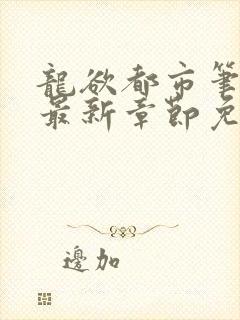 龍欲都市筆
最新章節免
邊加